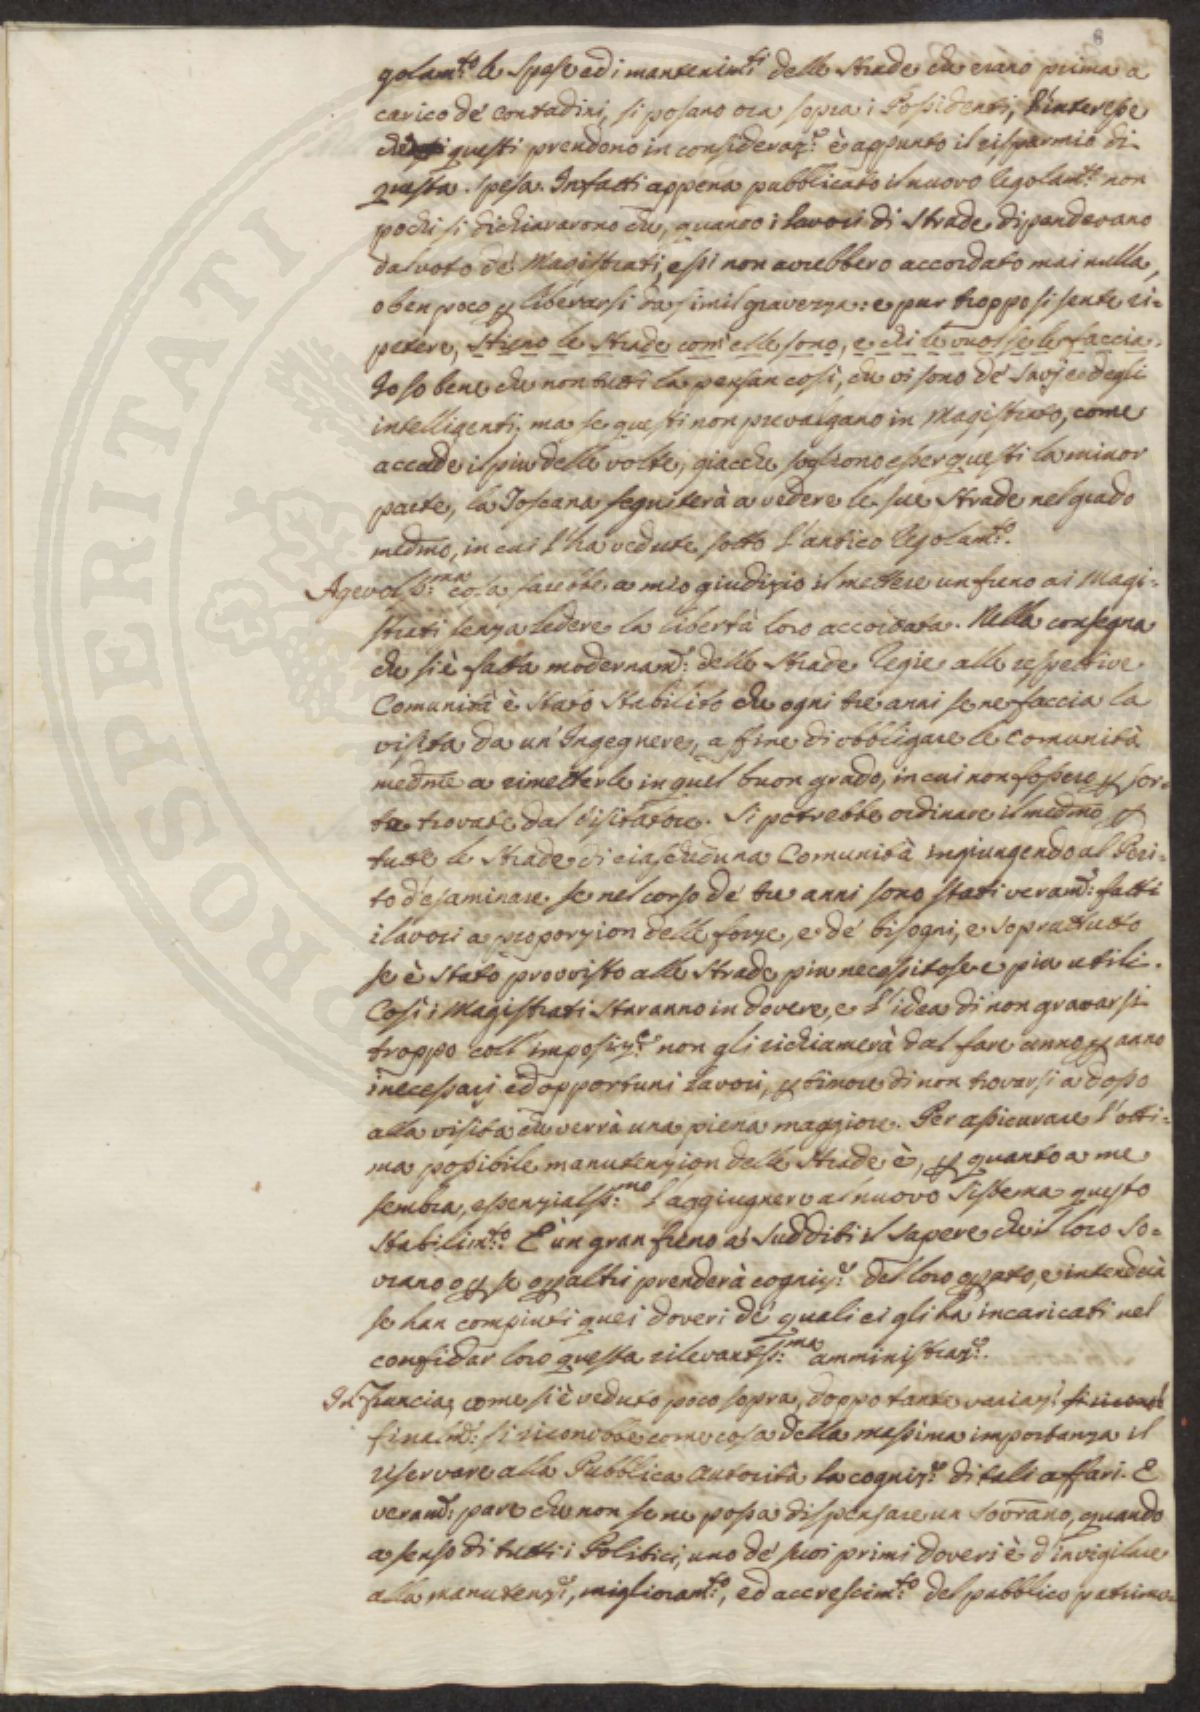 8
golam.to le spese ed i mantenim.ti delle strade che erano prima a
carico de' contadini, si posano ora sopra i Possidenti, l'interesse
che questi prendono in consideraz.e è appunto il risparmio di
questa spesa. Infatti appena pubblicato il nuovo Regolam.to non
pochi si dichiararono che, quando i lavori di strade dipendevano
dal voto de' Magistrati, essi non avrebbero accordato mai nulla,
o ben poco p liberarsi da simil gravezza: e pur troppo si sente ri-
petere, stieno le strade com'elle sono, e chi le vuol se le faccia.
Io so bene che non tutti la pensan così, che vi sono de' savj e degli
intelligenti; ma se questi non prevalgano in Magistrato, come
accade il più delle volte, giacchè sogliono esser questi la minor
parte, la Toscana seguiterà a vedere le sue strade nel grado
medmo, in cui l'ha vedute sotto l'antico Regolam.to.
Agevoliss.ma cosa sarebbe a mio giudizio il mettere un freno ai Magi-
strati senza ledere la libertà loro accordata. Nella consegna
che si è fatta modernam.e delle strade Regie alle respettive
Comunità è stato stabilito che ogni tre anni se ne faccia la
visita da un' Ingegnere, a fine di obbligare le Comunità
medme a rimetterle in quel buon grado, in cui non fossero p sor-
te trovate dal Visitatore. Si potrebbe ordinare il medmo p
tutte le strade di ciascheduna Comunità ingiungendo al Peri-
to d'esaminare se nel corso de' tre anni sono stati veram.e fatti
i lavori a proporzion delle forze, e de' bisogni, e soprattutto
se è stato provvisto alle strade più necessitose e più utili.
Così i Magistrati staranno in dovere, e l'idea di non gravarsi
troppo coll' imposiz.e non gli richiamerà dal fare anno p anno
i necessarj ed opportuni lavori, p timore di non trovarsi a dosso
alla visita che verrà una piena maggiore. Per assicurare l'otti-
ma possibile manutenzion delle strade è, p quanto a me
sembra, essenzialiss.mo l'aggiugnere al nuovo Sistema questo
stabilim.to. È un gran freno a' sudditi il sapere che il loro So-
vrano o p se o p altri prenderà cogniz.e del loro operato, e intenderà
se han compiuti quei doveri de' quali ei gli ha incaricati nel
confidar loro questa rilevantiss.ma amministraz.e.
In Francia, come si è veduto poco sopra, doppo tante variaz.i
finalm.e si riconobbe come cosa della massima importanza il
riservare alla Pubblica autorità la cogniz.e di tali affari. E
veram.e pare che non se ne possa dispensare un Sovrano, quando
a senso di tutti i Politici, uno de' suoi primi doveri è d'invigilare
alla manutenz.e, miglioram.to, ed accrescim.to del pubblico patrimo-
PROSPERITATI